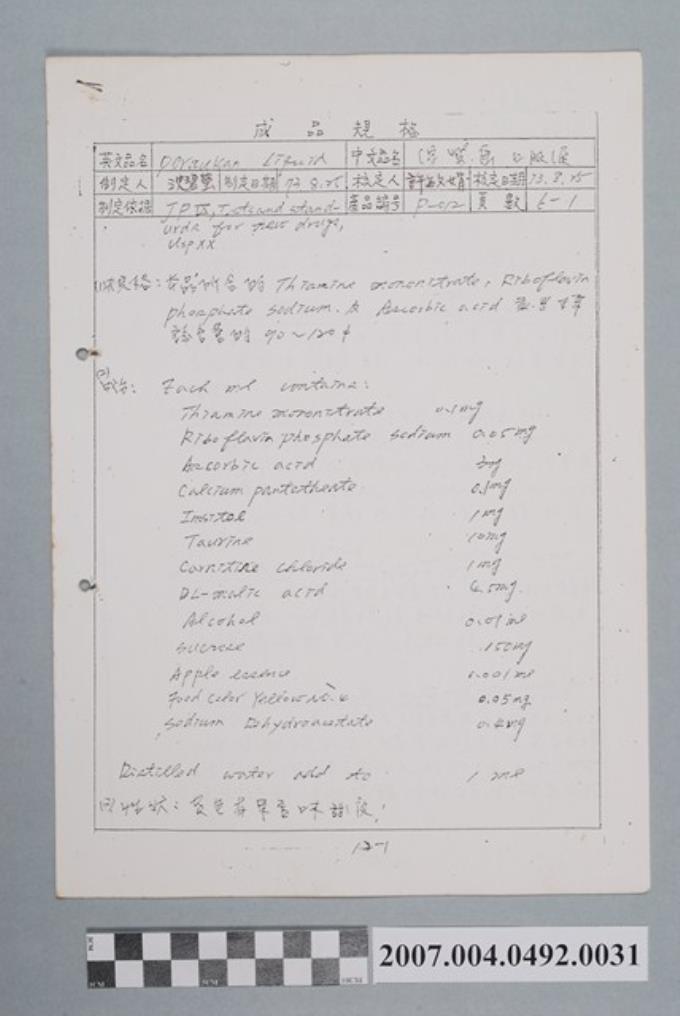 成品規格
英文品名 Liquid 中文品名
制定人 制定日期 73.8.25 核定人 核定日期 73.8.25
制定依據 JP IX, Tests and stand- 產品編號 P-012 頁數 6-1
urds for new drugs,
USP XX
Thiamine mononitrate, Riboflavin
phosphate sodium 及 Ascorbic acid
90~120%
Each ml contains:
Thiamine mononitrate 0.1mg
Riboflavin phosphate sodium 0.05mg
Ascorbic acid
Calcium pantothenate 0.1mg
Inositol 1mg
Taurine 10mg
Carnitine chloride 1mg
DL-malic acid
Alcohol 0.01ml
Sucrose 150mg
Apple essence 0.001ml
Food Color Yellow No. 4 0.05mg
Sodium Dehydroacetate 0.4mg
Distilled water add to 1 ml
性狀:
12-1
2007.004.0492.0031